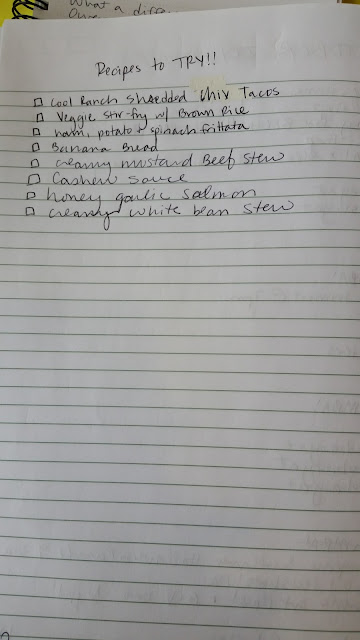 What a
Recipes to TRY!!
Cool Ranch Shredded Chix Tacos
Veggie Stir-fry w/ Brown Rice
ham, potato + spinach frittata
Banana Bread
creamy mustard Beef Stew
Cashew Sauce
honey garlic Salmon
creamy white bean Stew